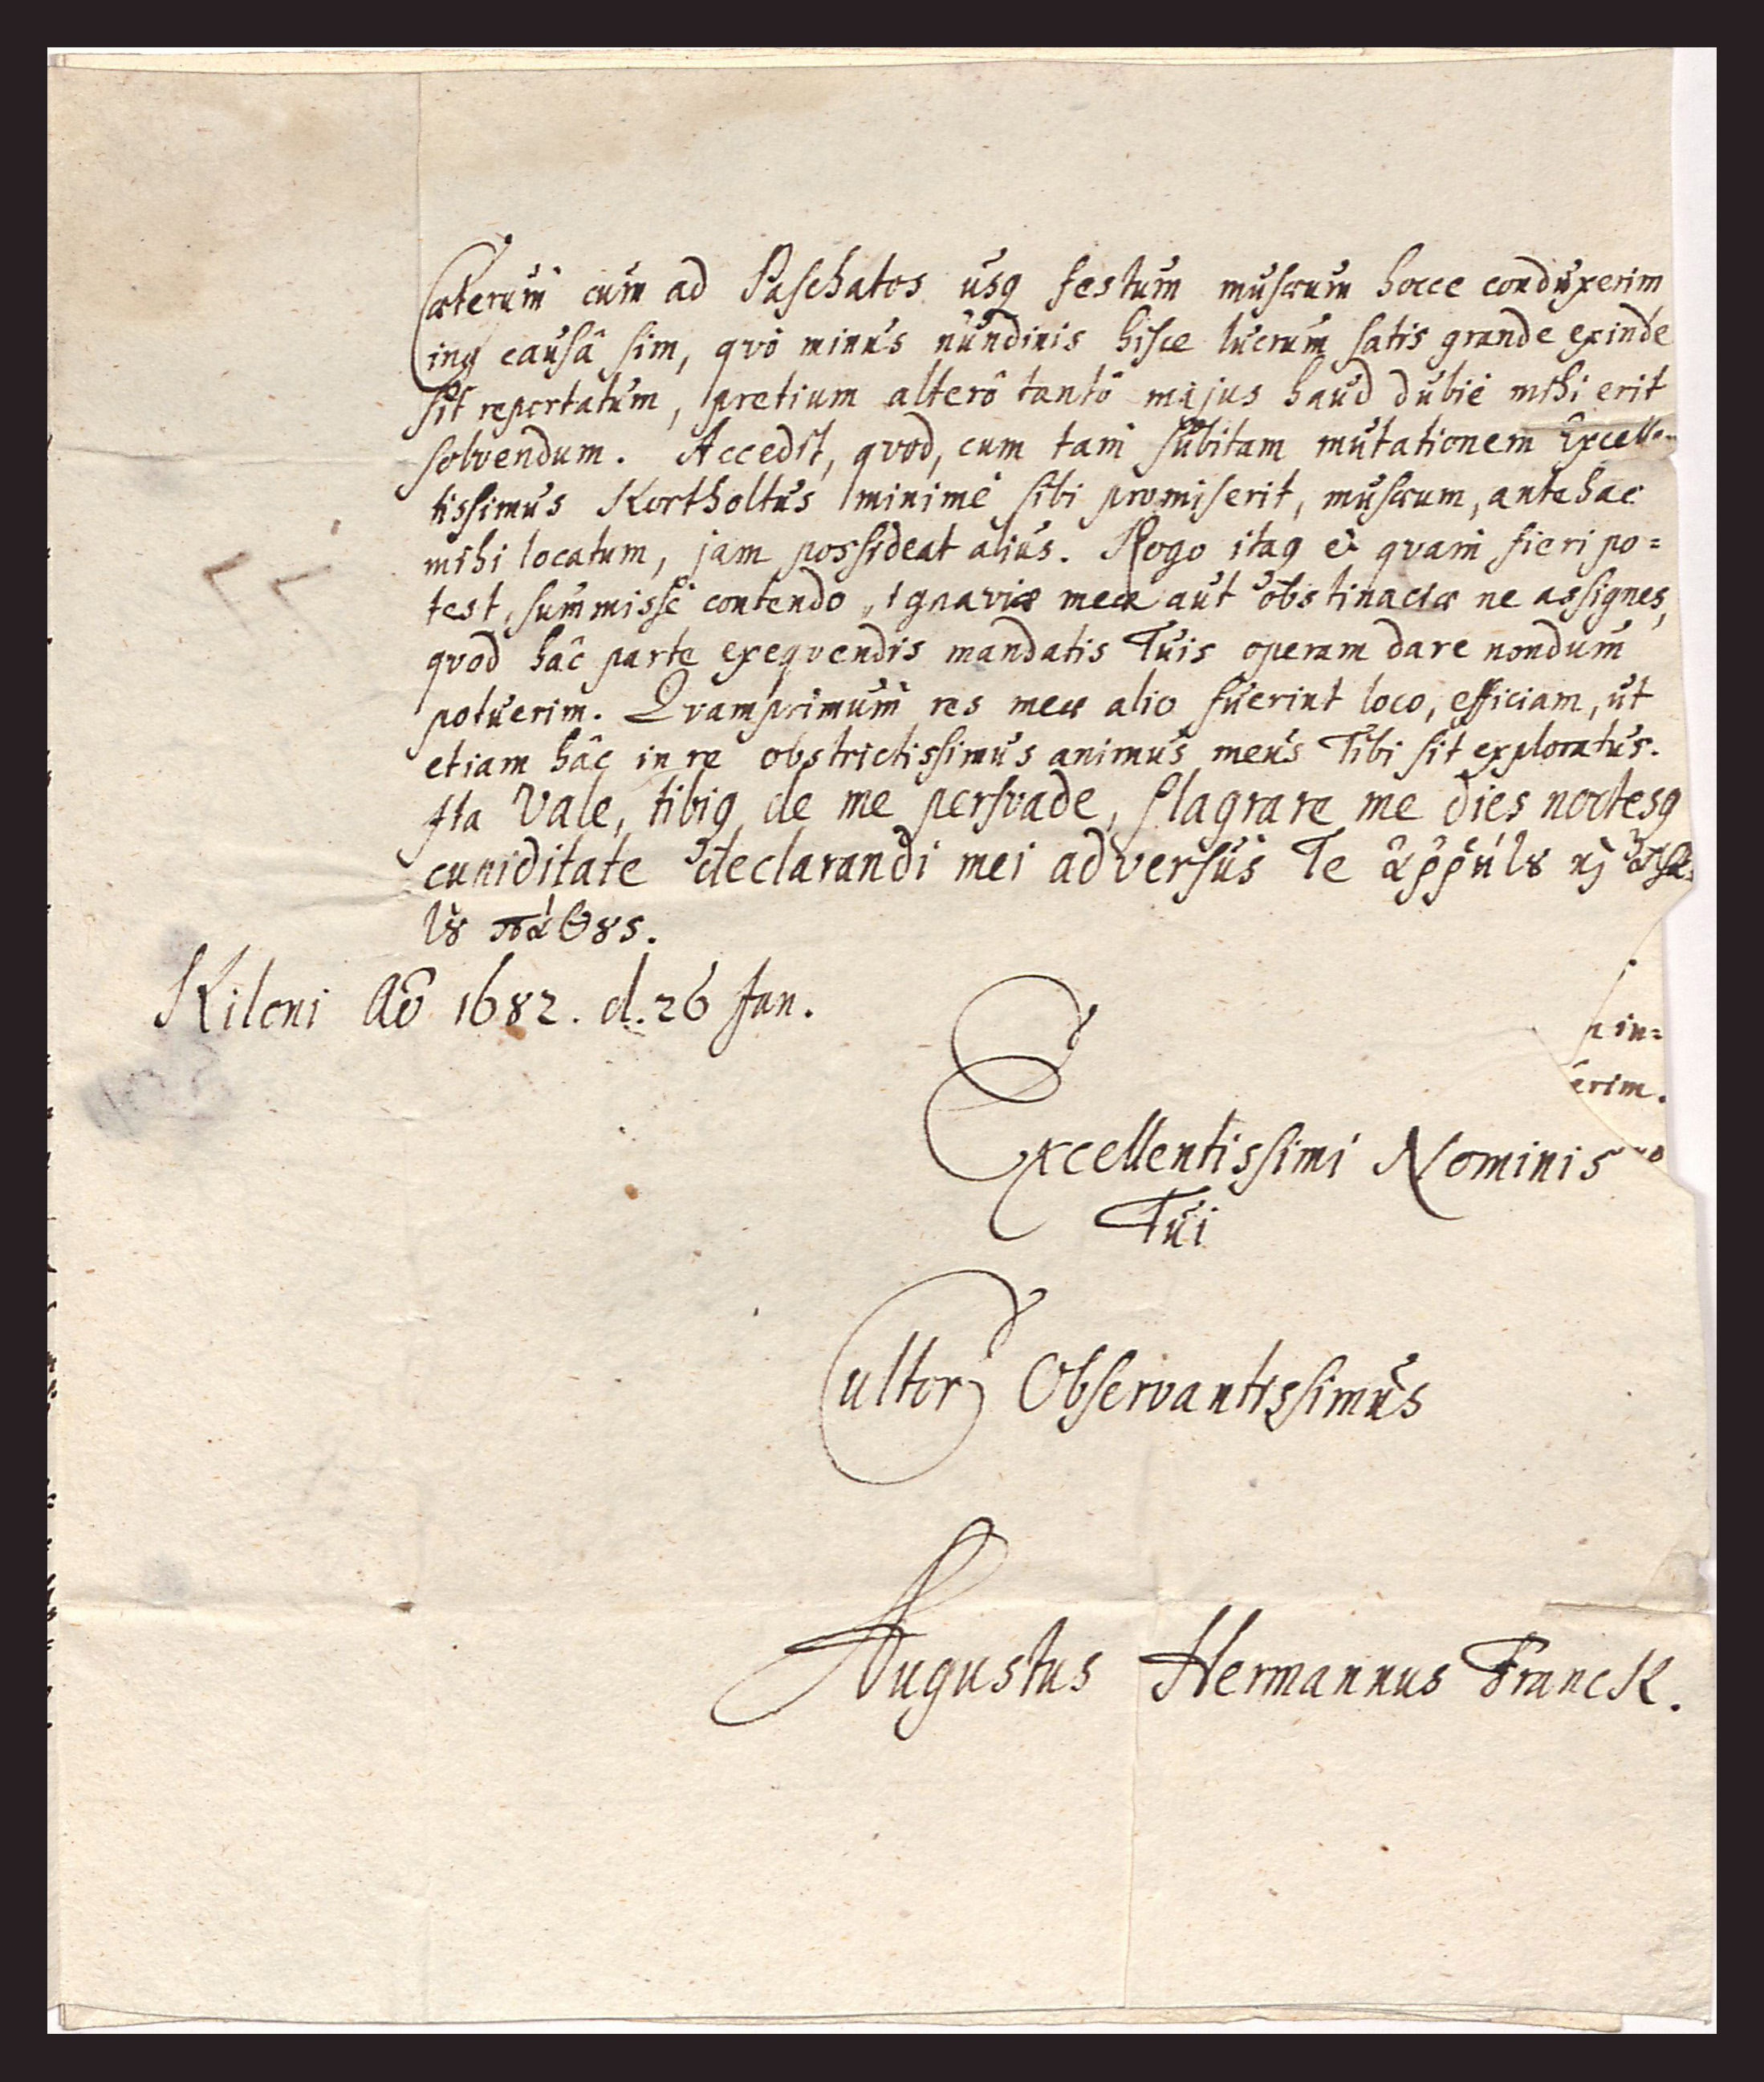 Cæterum cum ad Paschatos usq festum musæum hocce conduxerim
inq causâ sim, qvò minus nundinis hisce lucrum satis grande exinde
sit reportatum, pretium alterô tantô majus haud dubiè mihi erit
solvendum. Accedit, qvod, cum tam subitam mutationem Excellen-
tissimus Kortholtus minimè sibi promiserit, musæum, antehac
mihi locatum, jam possideat alius. Rogo itaq è qvam fieri po=
test, summissè contendo, ignaviæ meæ aut obstinaciæ ne assignes,
qvod hâc parte exeqvendis mandatis Tuis operam dare nondum
potuerim. Qvamprimum res meæ alio fuerint loco, efficiam, ut
etiam hâc in re obstrictissimus animus meus Tibi sit exploratus.
Ita Vale, tibiq de me persvade, flagrare me dies noctesq
cupiditate declarandi mei adversus Te ἀῤῥήτȣ ϗ
πάθȣς.
Kiloni Aō 1682. d. 26 Jan.
in=
erim.
Excellentissimi Nominis
Tui
Cultor Observantissimus
Augustus Hermannus Franck.